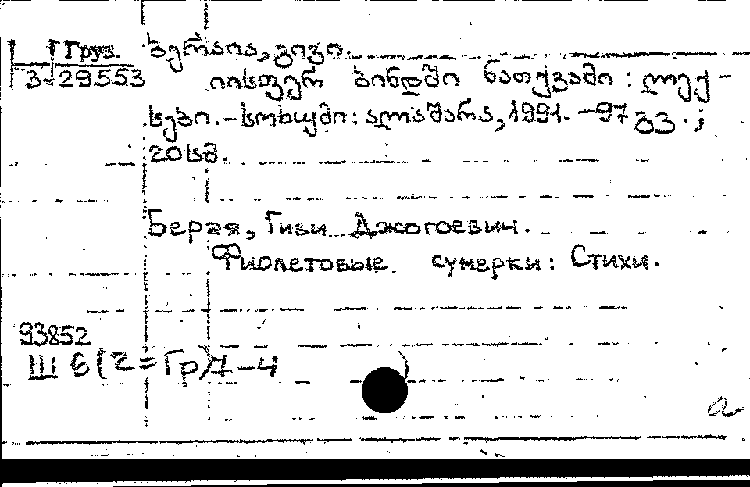 Груз. ბერაია, გივი.
3-29553 იისფერ ბინდში ნათქვამი: ლექ-
სები. - სოხუმი: ალაშარა, 1991. - 97 გვ.;
20 სმ.
Берая, Гиви Джогоевич.
Фиолетовые сумерки: Стихи.
93852
Ш 6(2=Гр)7-4
a